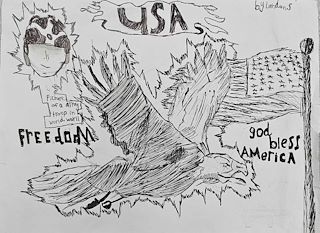 USA
by
Picture
of a Army
troop in
world war II
FREEDOM
god
bless
AMERICA